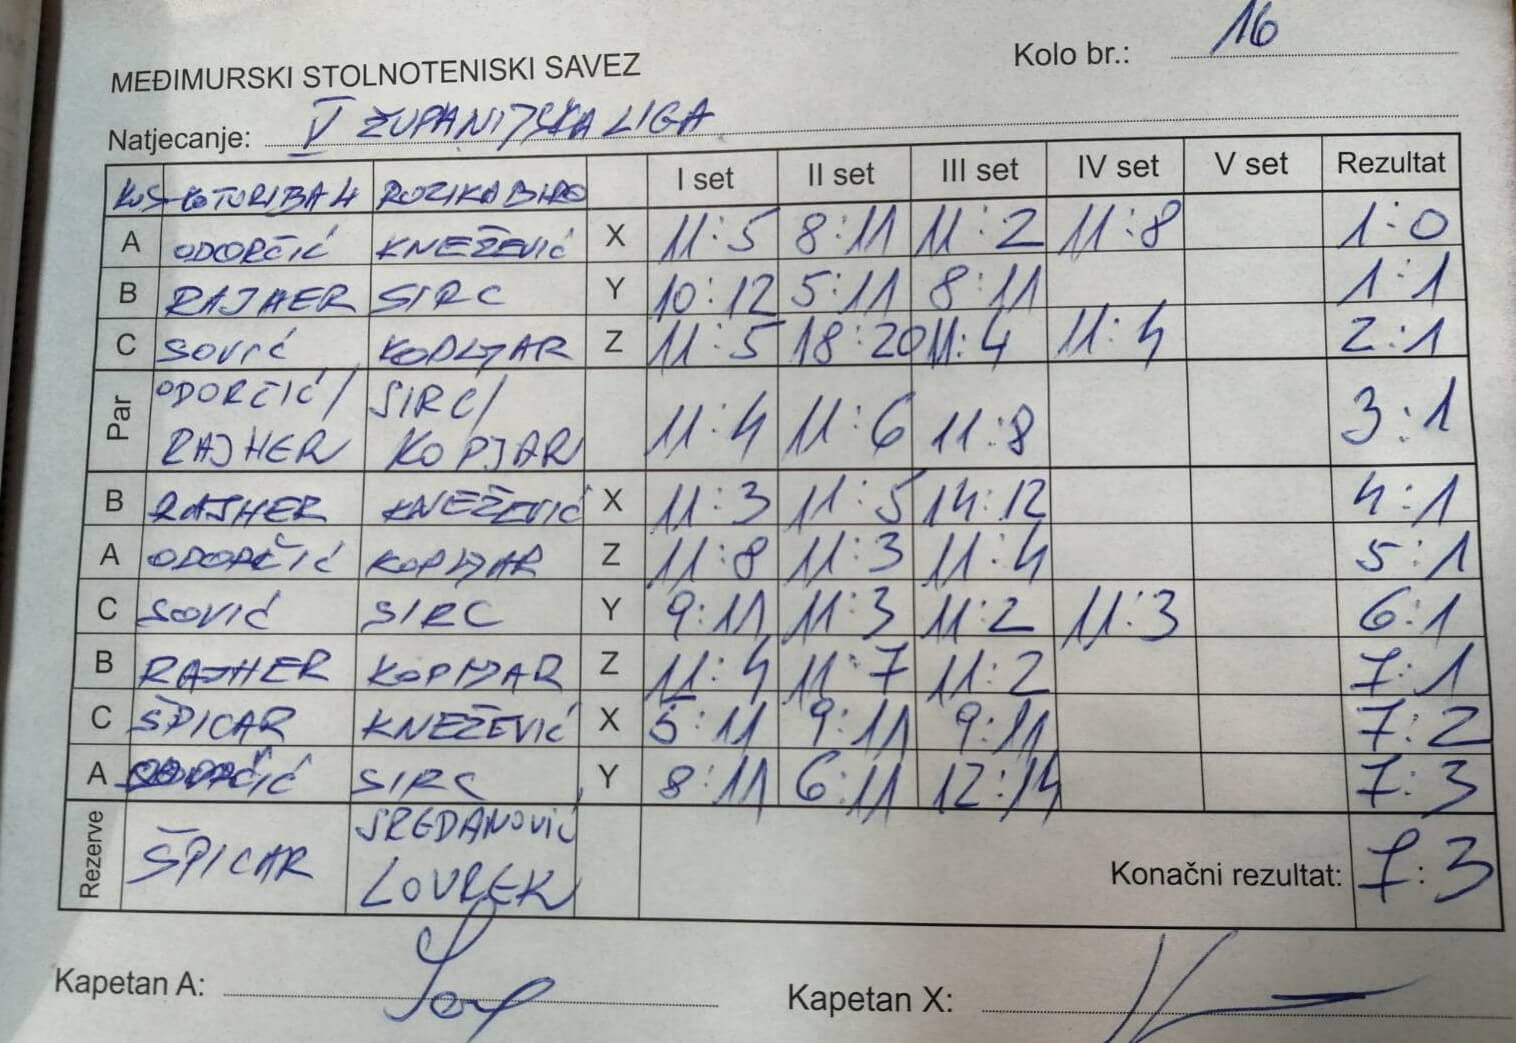 Kolo br.: 16
MEĐIMURSKI STOLNOTENISKI SAVEZ
Natjecanje: V ŽUPANIJSKA LIGA
KOTORIBA 4 ROZIKA BIRO I set II set III set IV set V set Rezultat
A ODORČIĆ KNEŽEVIĆ X 11:5 8:11 11:2 11:8 1:0
B RAJHER SIRC Y 10:12 5:11 8:11 1:1
C SOVIĆ KOPJAR Z 11:5 18:20 11:4 11:4 2:1
Par ODORČIĆ/ SIRC/ 11:4 11:6 11:8 3:1
RAJHER KOPJAR
B RAJHER KNEŽEVIĆ X 11:3 11:5 14:12 4:1
A ODORČIĆ KOPJAR Z 11:8 11:3 11:4 5:1
C SOVIĆ SIRC Y 9:11 11:3 11:2 11:3 6:1
B RAJHER KOPJAR Z 11:4 11:7 11:2 7:1
C ŠPICAR KNEŽEVIĆ X 5:11 9:11 9:11 7:2
A ODORČIĆ SIRC Y 8:11 6:11 12:14 7:3
Rezerve ŠPICAR SREDANOVIĆ
LOVREK Konačni rezultat: 7:3
Kapetan A:
Kapetan X: